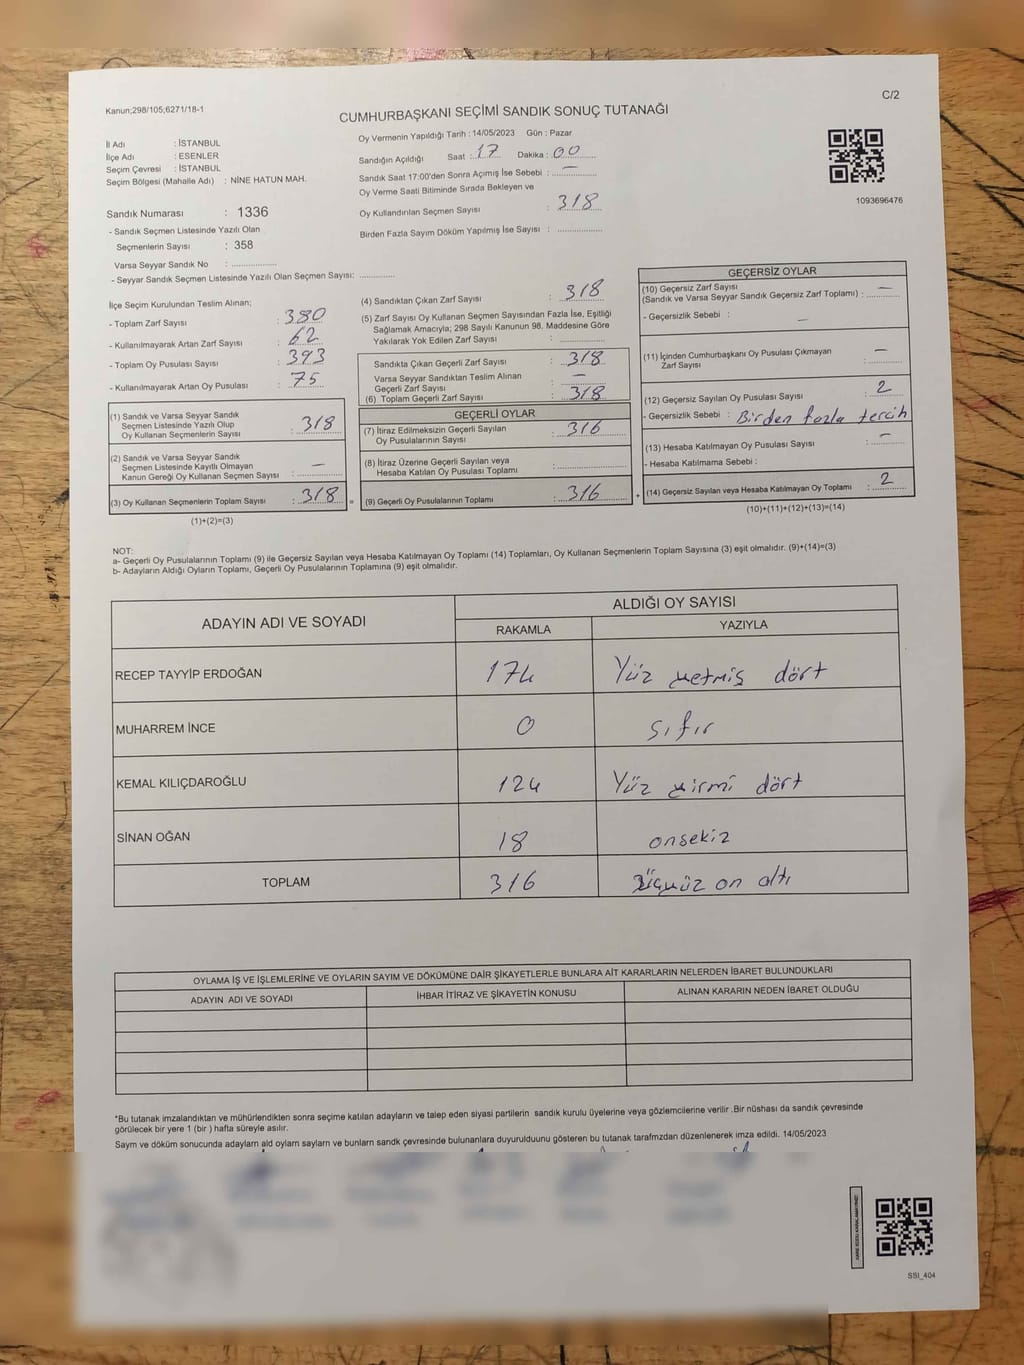 C/2
Kanun;298/105;6271/18-1
CUMHURBAŞKANI SEÇİMİ SANDIK SONUÇ TUTANAĞI
İl Adı : İSTANBUL
İlçe Adı : ESENLER
Seçim Çevresi : İSTANBUL
Seçim Bölgesi (Mahalle Adı) : NİNE HATUN MAH.
Sandık Numarası : 1336
- Sandık Seçmen Listesinde Yazılı Olan
Seçmenlerin Sayısı : 358
Varsa Seyyar Sandık No :
- Seyyar Sandık Seçmen Listesinde Yazılı Olan Seçmen Sayısı:
Oy Vermenin Yapıldığı Tarih : 14/05/2023 Gün : Pazar
Sandığın Açıldığı Saat : 17 Dakika : 00
Sandık Saat 17:00'den Sonra Açımış İse Sebebi : —
Oy Verme Saati Bitiminde Sırada Bekleyen ve
Oy Kullandırılan Seçmen Sayısı : 318
Birden Fazla Sayım Döküm Yapılmış İse Sayısı :
1093696476
İlçe Seçim Kurulundan Teslim Alınan;
- Toplam Zarf Sayısı : 380
- Kullanılmayarak Artan Zarf Sayısı : 62
- Toplam Oy Pusulası Sayısı : 393
- Kullanılmayarak Artan Oy Pusulası : 75
(1) Sandık ve Varsa Seyyar Sandık
Seçmen Listesinde Yazılı Olup
Oy Kullanan Seçmenlerin Sayısı : 318
(2) Sandık ve Varsa Seyyar Sandık
Seçmen Listesinde Kayıtlı Olmayan
Kanun Gereği Oy Kullanan Seçmen Sayısı : —
(3) Oy Kullanan Seçmenlerin Toplam Sayısı : 318 =
(1)+(2)=(3)
(4) Sandıktan Çıkan Zarf Sayısı : 318
(5) Zarf Sayısı Oy Kullanan Seçmen Sayısından Fazla İse, Eşitliği
Sağlamak Amacıyla; 298 Sayılı Kanunun 98. Maddesine Göre
Yakılarak Yok Edilen Zarf Sayısı :
Sandıkta Çıkan Geçerli Zarf Sayısı : 318
Varsa Seyyar Sandıktan Teslim Alınan
Geçerli Zarf Sayısı : —
(6) Toplam Geçerli Zarf Sayısı : 318
GEÇERLİ OYLAR
(7) İtiraz Edilmeksizin Geçerli Sayılan
Oy Pusulalarının Sayısı : 316
(8) İtiraz Üzerine Geçerli Sayılan veya
Hesaba Katılan Oy Pusulası Toplamı :
(9) Geçerli Oy Pusulalarının Toplamı : 316 +
GEÇERSİZ OYLAR
(10) Geçersiz Zarf Sayısı
(Sandık ve Varsa Seyyar Sandık Geçersiz Zarf Toplamı) : —
- Geçersizlik Sebebi : —
(11) İçinden Cumhurbaşkanı Oy Pusulası Çıkmayan
Zarf Sayısı : —
(12) Geçersiz Sayılan Oy Pusulası Sayısı : 2
- Geçersizlik Sebebi : Birden fazla tercih
(13) Hesaba Katılmayan Oy Pusulası Sayısı : —
- Hesaba Katılmama Sebebi :
(14) Geçersiz Sayılan veya Hesaba Katılmayan Oy Toplamı : 2
(10)+(11)+(12)+(13)=(14)
NOT:
a- Geçerli Oy Pusulalarının Toplamı (9) ile Geçersiz Sayılan veya Hesaba Katılmayan Oy Toplamı (14) Toplamları, Oy Kullanan Seçmenlerin Toplam Sayısına (3) eşit olmalıdır. (9)+(14)=(3)
b- Adayların Aldığı Oyların Toplamı, Geçerli Oy Pusulalarının Toplamına (9) eşit olmalıdır.
ADAYIN ADI VE SOYADI
ALDIĞI OY SAYISI
RAKAMLA YAZIYLA
RECEP TAYYİP ERDOĞAN 174 Yüz yetmiş dört
MUHARREM İNCE 0 sıfır
KEMAL KILIÇDAROĞLU 124 Yüz yirmi dört
SİNAN OĞAN 18 onsekiz
TOPLAM 316 üçyüz on altı
OYLAMA İŞ VE İŞLEMLERİNE VE OYLARIN SAYIM VE DÖKÜMÜNE DAİR ŞİKAYETLERLE BUNLARA AİT KARARLARIN NELERDEN İBARET BULUNDUKLARI
ADAYIN ADI VE SOYADI İHBAR İTİRAZ VE ŞİKAYETİN KONUSU ALINAN KARARIN NEDEN İBARET OLDUĞU
*Bu tutanak imzalandıktan ve mühürlendikten sonra seçime katılan adayların ve talep eden siyasi partilerin sandık kurulu üyelerine veya gözlemcilerine verilir .Bir nüshası da sandık çevresinde
görülecek bir yere 1 (bir ) hafta süreyle asılır.
Sayım ve döküm sonucunda adayların ald oylam sayların ve bunların sandk çevresinde bulunanlara duyurulduunu gösteren bu tutanak tarafmzdan düzenlenerek imza edildi. 14/05/2023
SSI_404